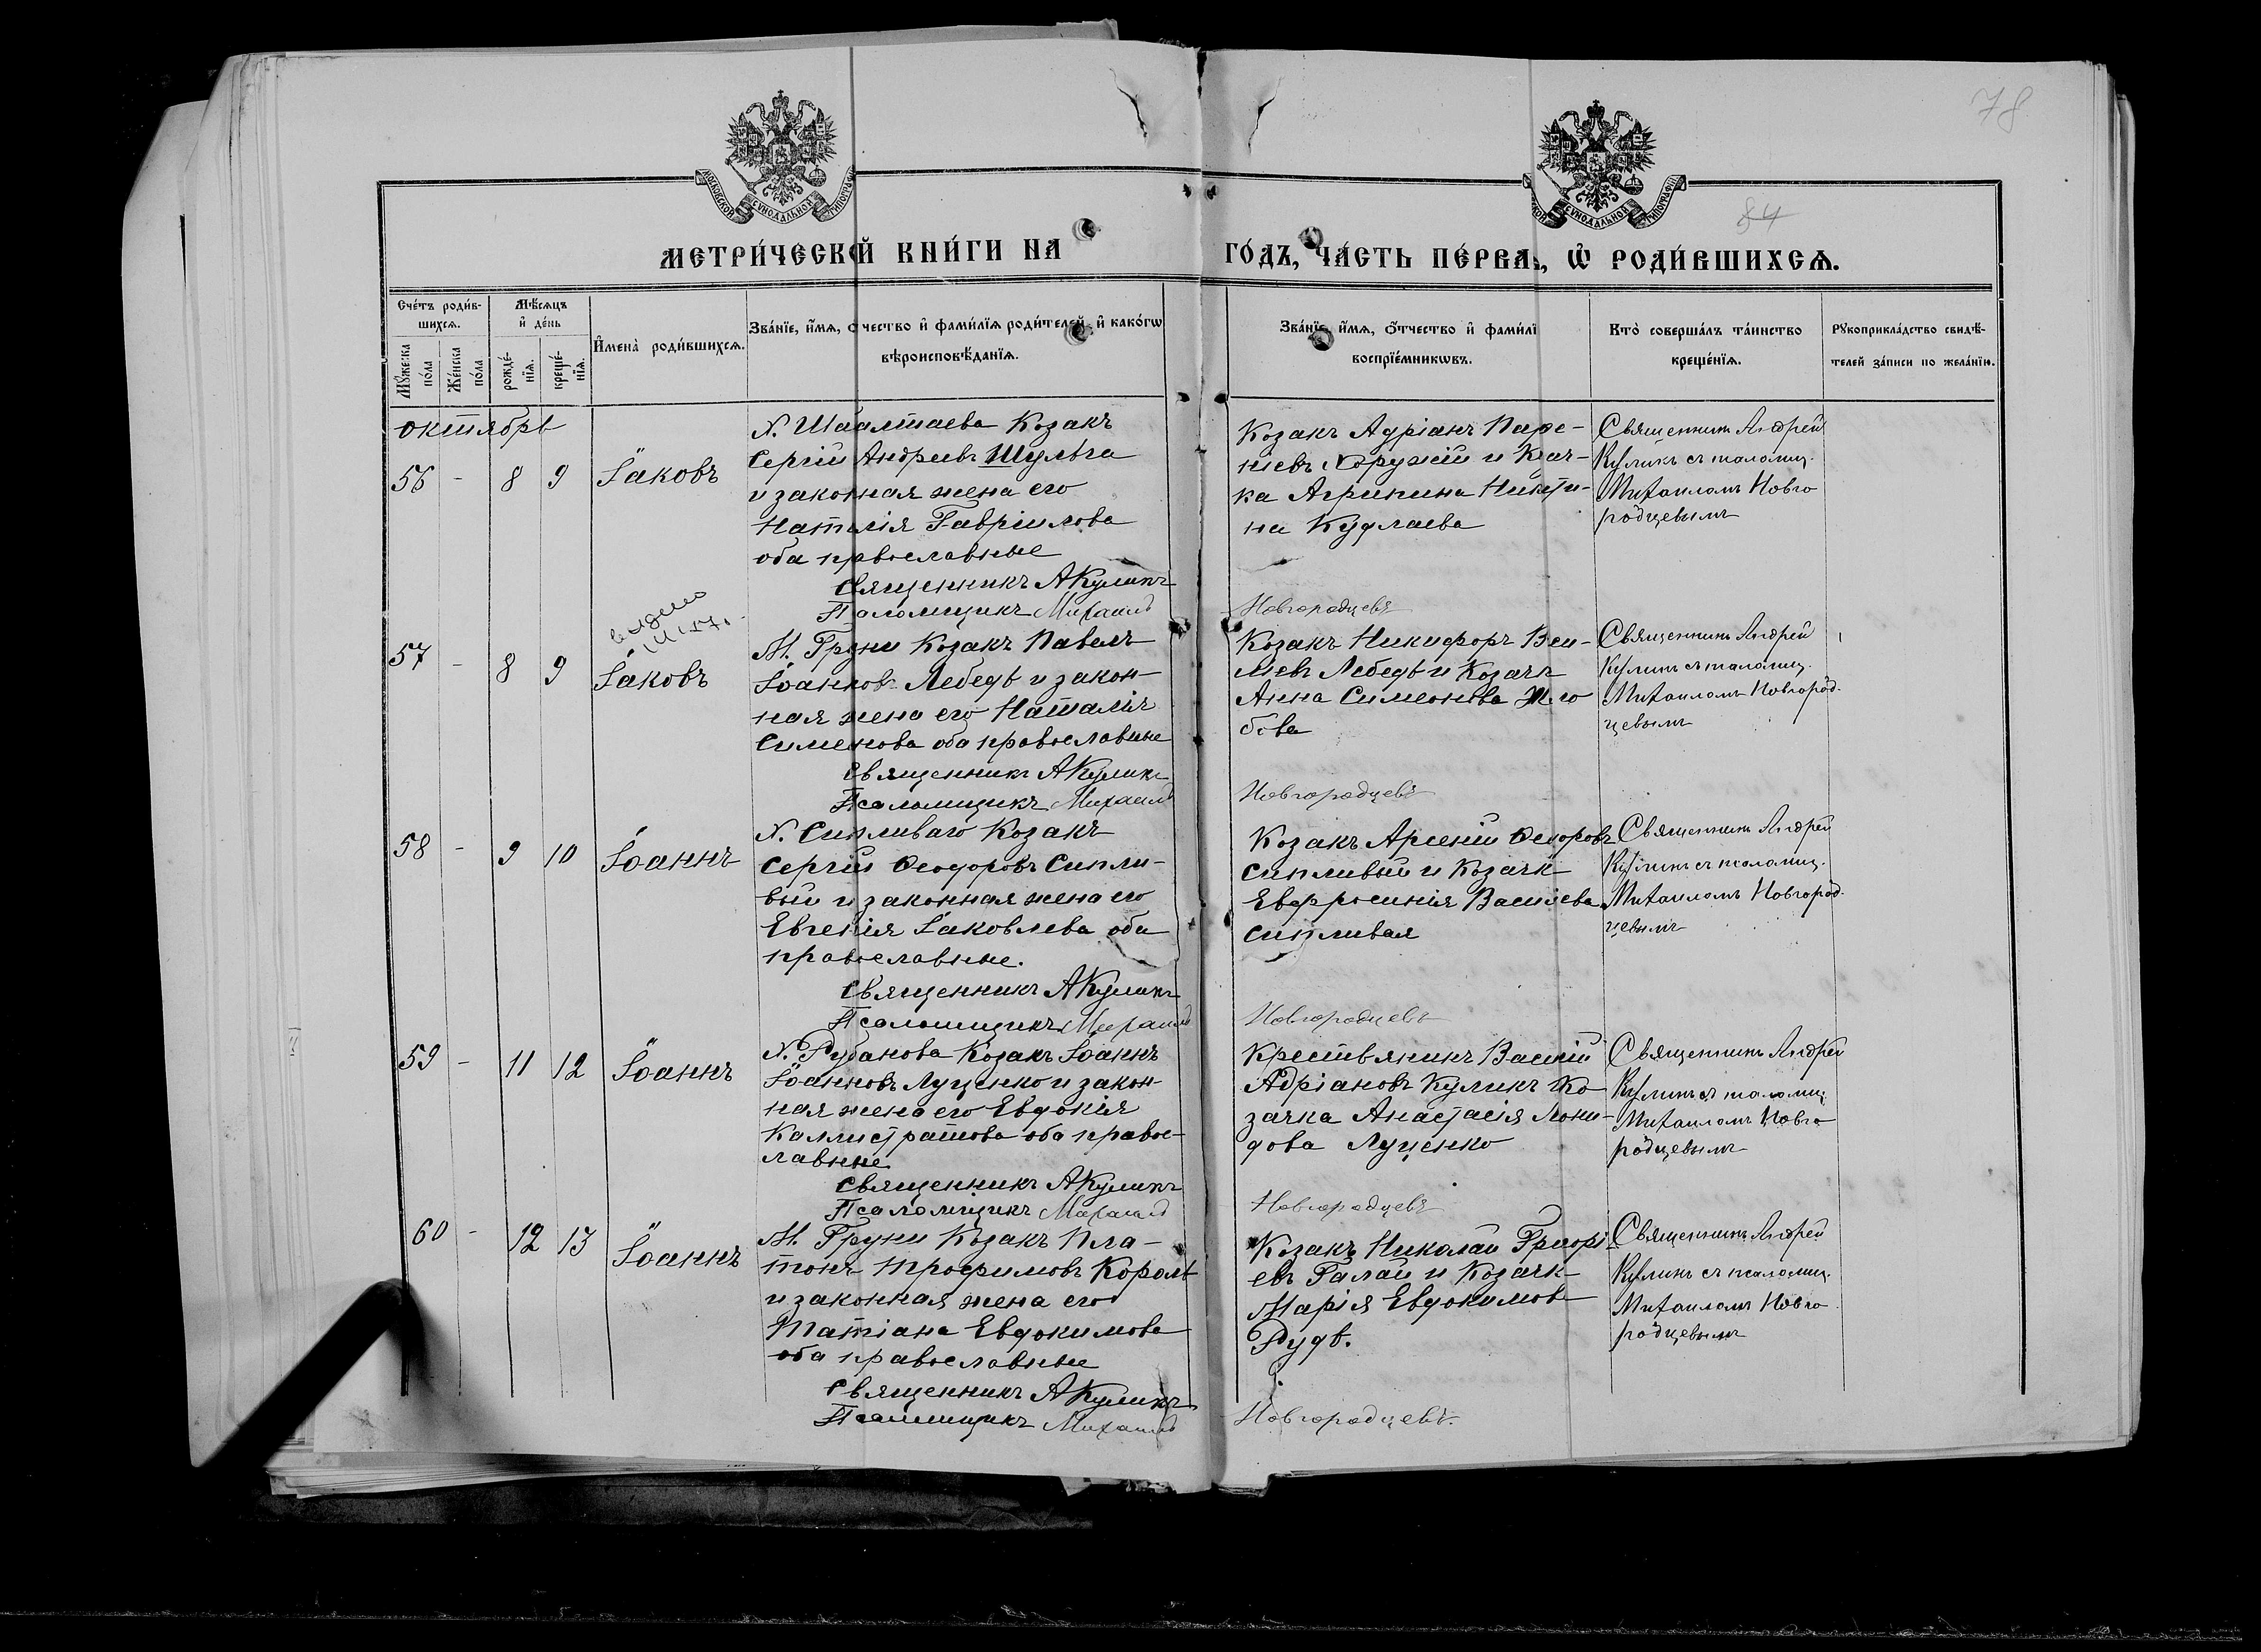 78
84
МОСКОВСКОЙ СУНОДАЛЬНОЙ ТИПОГРАФІИ
СУНОДАЛЬНОЙ ТИПОГРАФІИ
МЕТРИ́ЧЕСКОЙ КНИ́ГИ НА
ГО́ДЪ, ЧА́СТЬ ПЕ́РВАѦ, Ѡ҆ РОДИ́ВШИХСѦ.
Сче́тъ роди́в-
шихсѧ.
Мѣ́сѧцъ
и҆ де́нь
И҆мена̀ роди́вшихсѧ.
Зва́нїе, и҆́мѧ, о҆́чество и҆ фами́лїѧ роди́телей, и҆ како́гѡ
вѣроисповѣ́данїѧ.
Му́жеска
по́ла
Же́нска
по́ла
рожде́-
нїѧ.
креще́-
нїѧ.
Зва́нїе, и҆́мѧ, ѻ҆́тчество и҆ фами́лї
воспрїе́мникѡвъ.
Кто̀ соверша́лъ та́инство
креще́нїѧ.
Рꙋкоприкла́дство свидѣ́-
телей за́писи по жела́нїю.
октябрь
56 - 8 9 Іаковъ
Х. Шаалтаева Козакъ
Сергій Андреевъ Шульга
и законная жена его
Наталія Гавріилова
оба православные
Священникъ А Куликъ
Псаломщикъ Михаилъ
Козакъ Адріанъ Паре-
ніевъ Хоружій и Козач-
ка Агрипина Никити-
на Кудлаева
Новгородцевъ
Священникъ Андрей
Куликъ съ псаломщ.
Михаиломъ Новго
родцевымъ
57 - 8 9 Іаковъ
М. Груни Козакъ Павелъ
Іоанновъ Лебедь и закон-
ная жена его Наталія
Сименова оба православные
Священникъ А Куликъ
Псаломщикъ Михаилъ
Козакъ Никифоръ Васи-
ліевъ Лебедь и Козачк
Анна Симеонова
Новгородцевъ
Священникъ Андрей
Куликъ съ псаломщ.
Михаиломъ Новгород-
цевымъ
58 - 9 10 Іоаннъ
Х. Сипливаго Козакъ
Сергій Феодоровъ Сипли-
вый и законная жена его
Евгенія Іаковлева оба
православные.
Священникъ А Куликъ
Псаломщикъ Михаилъ
Козакъ Арсеній Феодоровъ
Сипливый и Козачк
Евфросинія Василіева
Сипливая
Новгородцевъ
Священникъ Андрей
Куликъ съ псаломщ.
Михаиломъ Новгород-
цевымъ
59 - 11 12 Іоаннъ
Х. Рубанова Козакъ Іоаннъ
Іоанновъ Луценко и закон-
ная жена его Евдокія
Каллистратова оба правос-
лавные
Священникъ А Куликъ
Псаломщикъ Михаилъ
Крестьянинъ Василій
Адріановъ Куликъ Ко-
зачка Анастасія
дова Луценко
Новгородцевъ
Священникъ Андрей
Куликъ съ псаломщ
Михаиломъ Новго
родцевымъ
60 - 12 13 Іоаннъ
М. Груни Козакъ Пла-
тонъ Трофимовъ Король
и законная жена его
Татіана Евдокимова
оба православные
Священникъ А Куликъ
Псаломщикъ Михаилъ
Козакъ Николай Григорі-
евъ Галай и Козачк
Марія Евдокимова
Рудь.
Новгородцевъ.
Священникъ Андрей
Куликъ съ псаломщ.
Михаиломъ Новго
родцевымъ